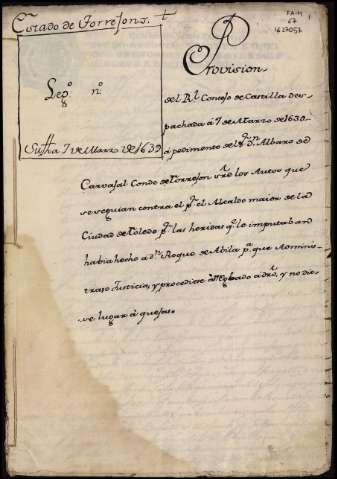 Estado de Torrejons.
Leg.º n.º
Su fha 7 de Marzo de 1639
Provision
del Rl. Consejo de Castilla des-
pachada á 7 de Marzo de 1639.
a pedimento del Sr. Dn. Albaro de
Carvajal Conde de Torrejon sre. los Autos que
se seguian contra el pr. el Alcalde maior de la
Ciudad de Toledo pr. las heridas qe. le imputaban
habia hecho á Dn. Roque de Abila pa. que Adminis-
trase Justicia, y procediese areglado á dro. y no die-
se lugar á quejas.